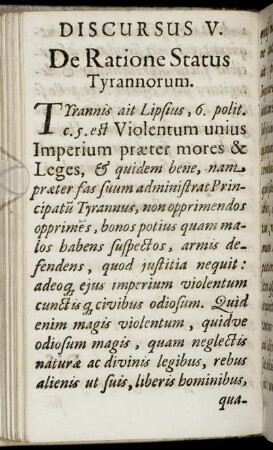 DISCURSUS V.
De Ratione Status
Tyrannorum.
TYrannis ait Lipsius, 6. polit.
c. 5. est Violentum unius
Imperium præter mores &
Leges, & quidem bene, nam
præter fas suum administrat Prin-
cipatū Tyrannus, non opprimendos
opprimēs, bonos potius quam ma-
los habens suspectos, armis de-
fendens, quod justitia nequit:
adeoq; ejus imperium violentum
cunctisq; civibus odiosum. Quid
enim magis violentum, quidve
odiosum magis, quam neglectis
naturæ ac divinis legibus, rebus
alienis ut suis, liberis hominibus,
qua-